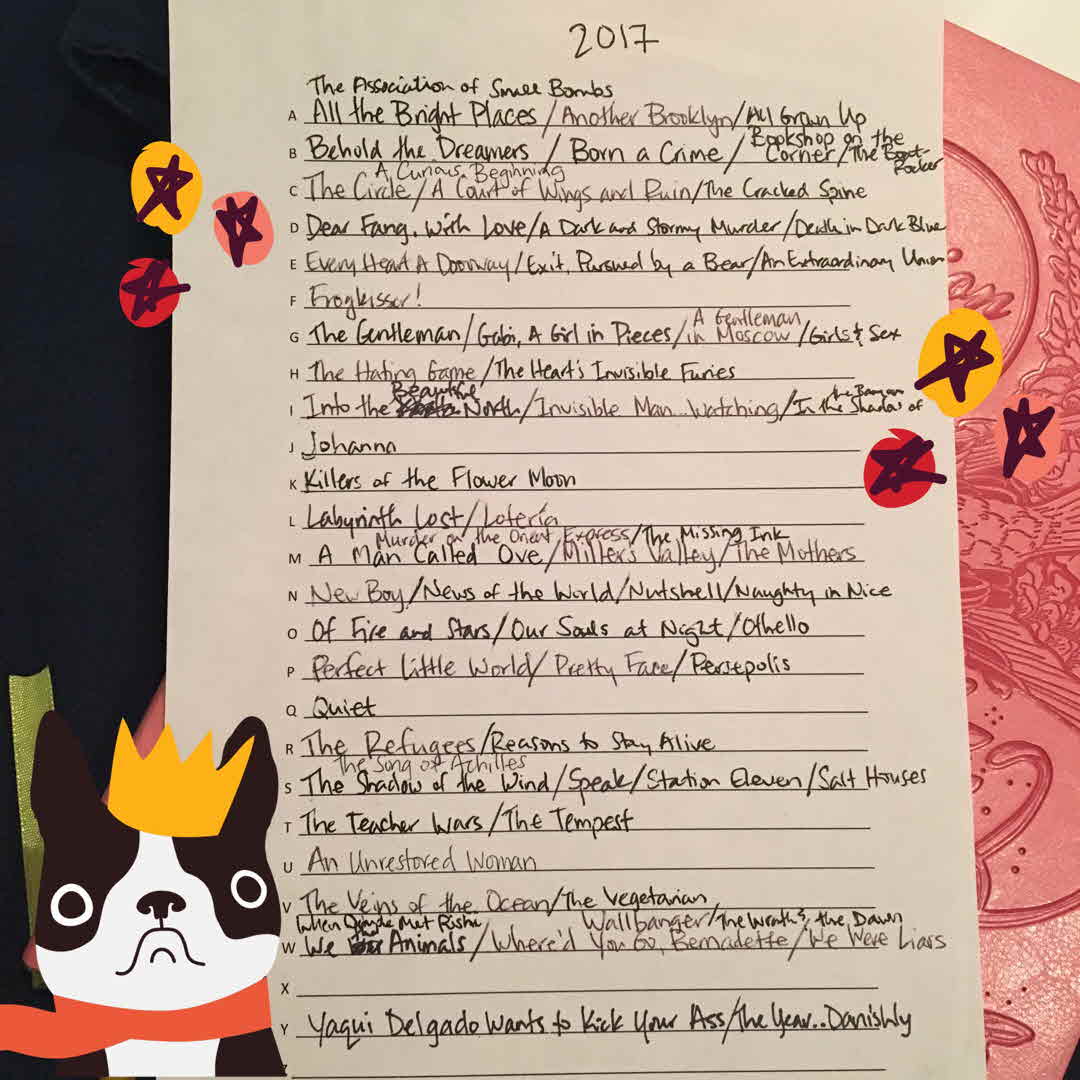 2017
The Association of Small Bombs
A All the Bright Places / Another Brooklyn / All Grown Up
Bookshop on the
B Behold the Dreamers / Born a Crime / Corner / The Book-
A Curious Beginning
C The Circle / A Court of Wings and Ruin / The Cracked Spine
D Dear Fang, With Love / A Dark and Stormy Murder / Death in Dark Blue
E Every Heart A Doorway / Exit, Pursued by a Bear / An Extraordinary Union
F Frogkisser!
A Gentleman
G The Gentleman / Gabi, A Girl in Pieces / in Moscow / Girls & Sex
H The Hating Game / The Heart's Invisible Furies
Beautiful
the Banyan
I Into the North / Invisible Man.. Watching / In the Shadow of
J Johanna
K Killers of the Flower Moon
L Labyrinth Lost / Lotería
Murder on the Orient Express / The Missing Ink
M A Man Called Ove / Miller's Valley / The Mothers
N New Boy / News of the World / Nutshell / Naughty in Nice
O Of Fire and Stars / Our Souls at Night / Othello
P Perfect Little World / Pretty Face / Persepolis
Q Quiet
R The Refugees / Reasons to Stay Alive
The Song of Achilles
S The Shadow of the Wind / Speak / Station Eleven / Salt Houses
T The Teacher Wars / The Tempest
U An Unrestored Woman
V The Veins of the Ocean / The Vegetarian
When Met Rishi Wallbanger / The Wrath & the Dawn
W We Animals / Where'd You Go, Bernadette / We Were Liars
X
Y Yaqui Delgado Wants to Kick Your Ass / The Year.. Danishly